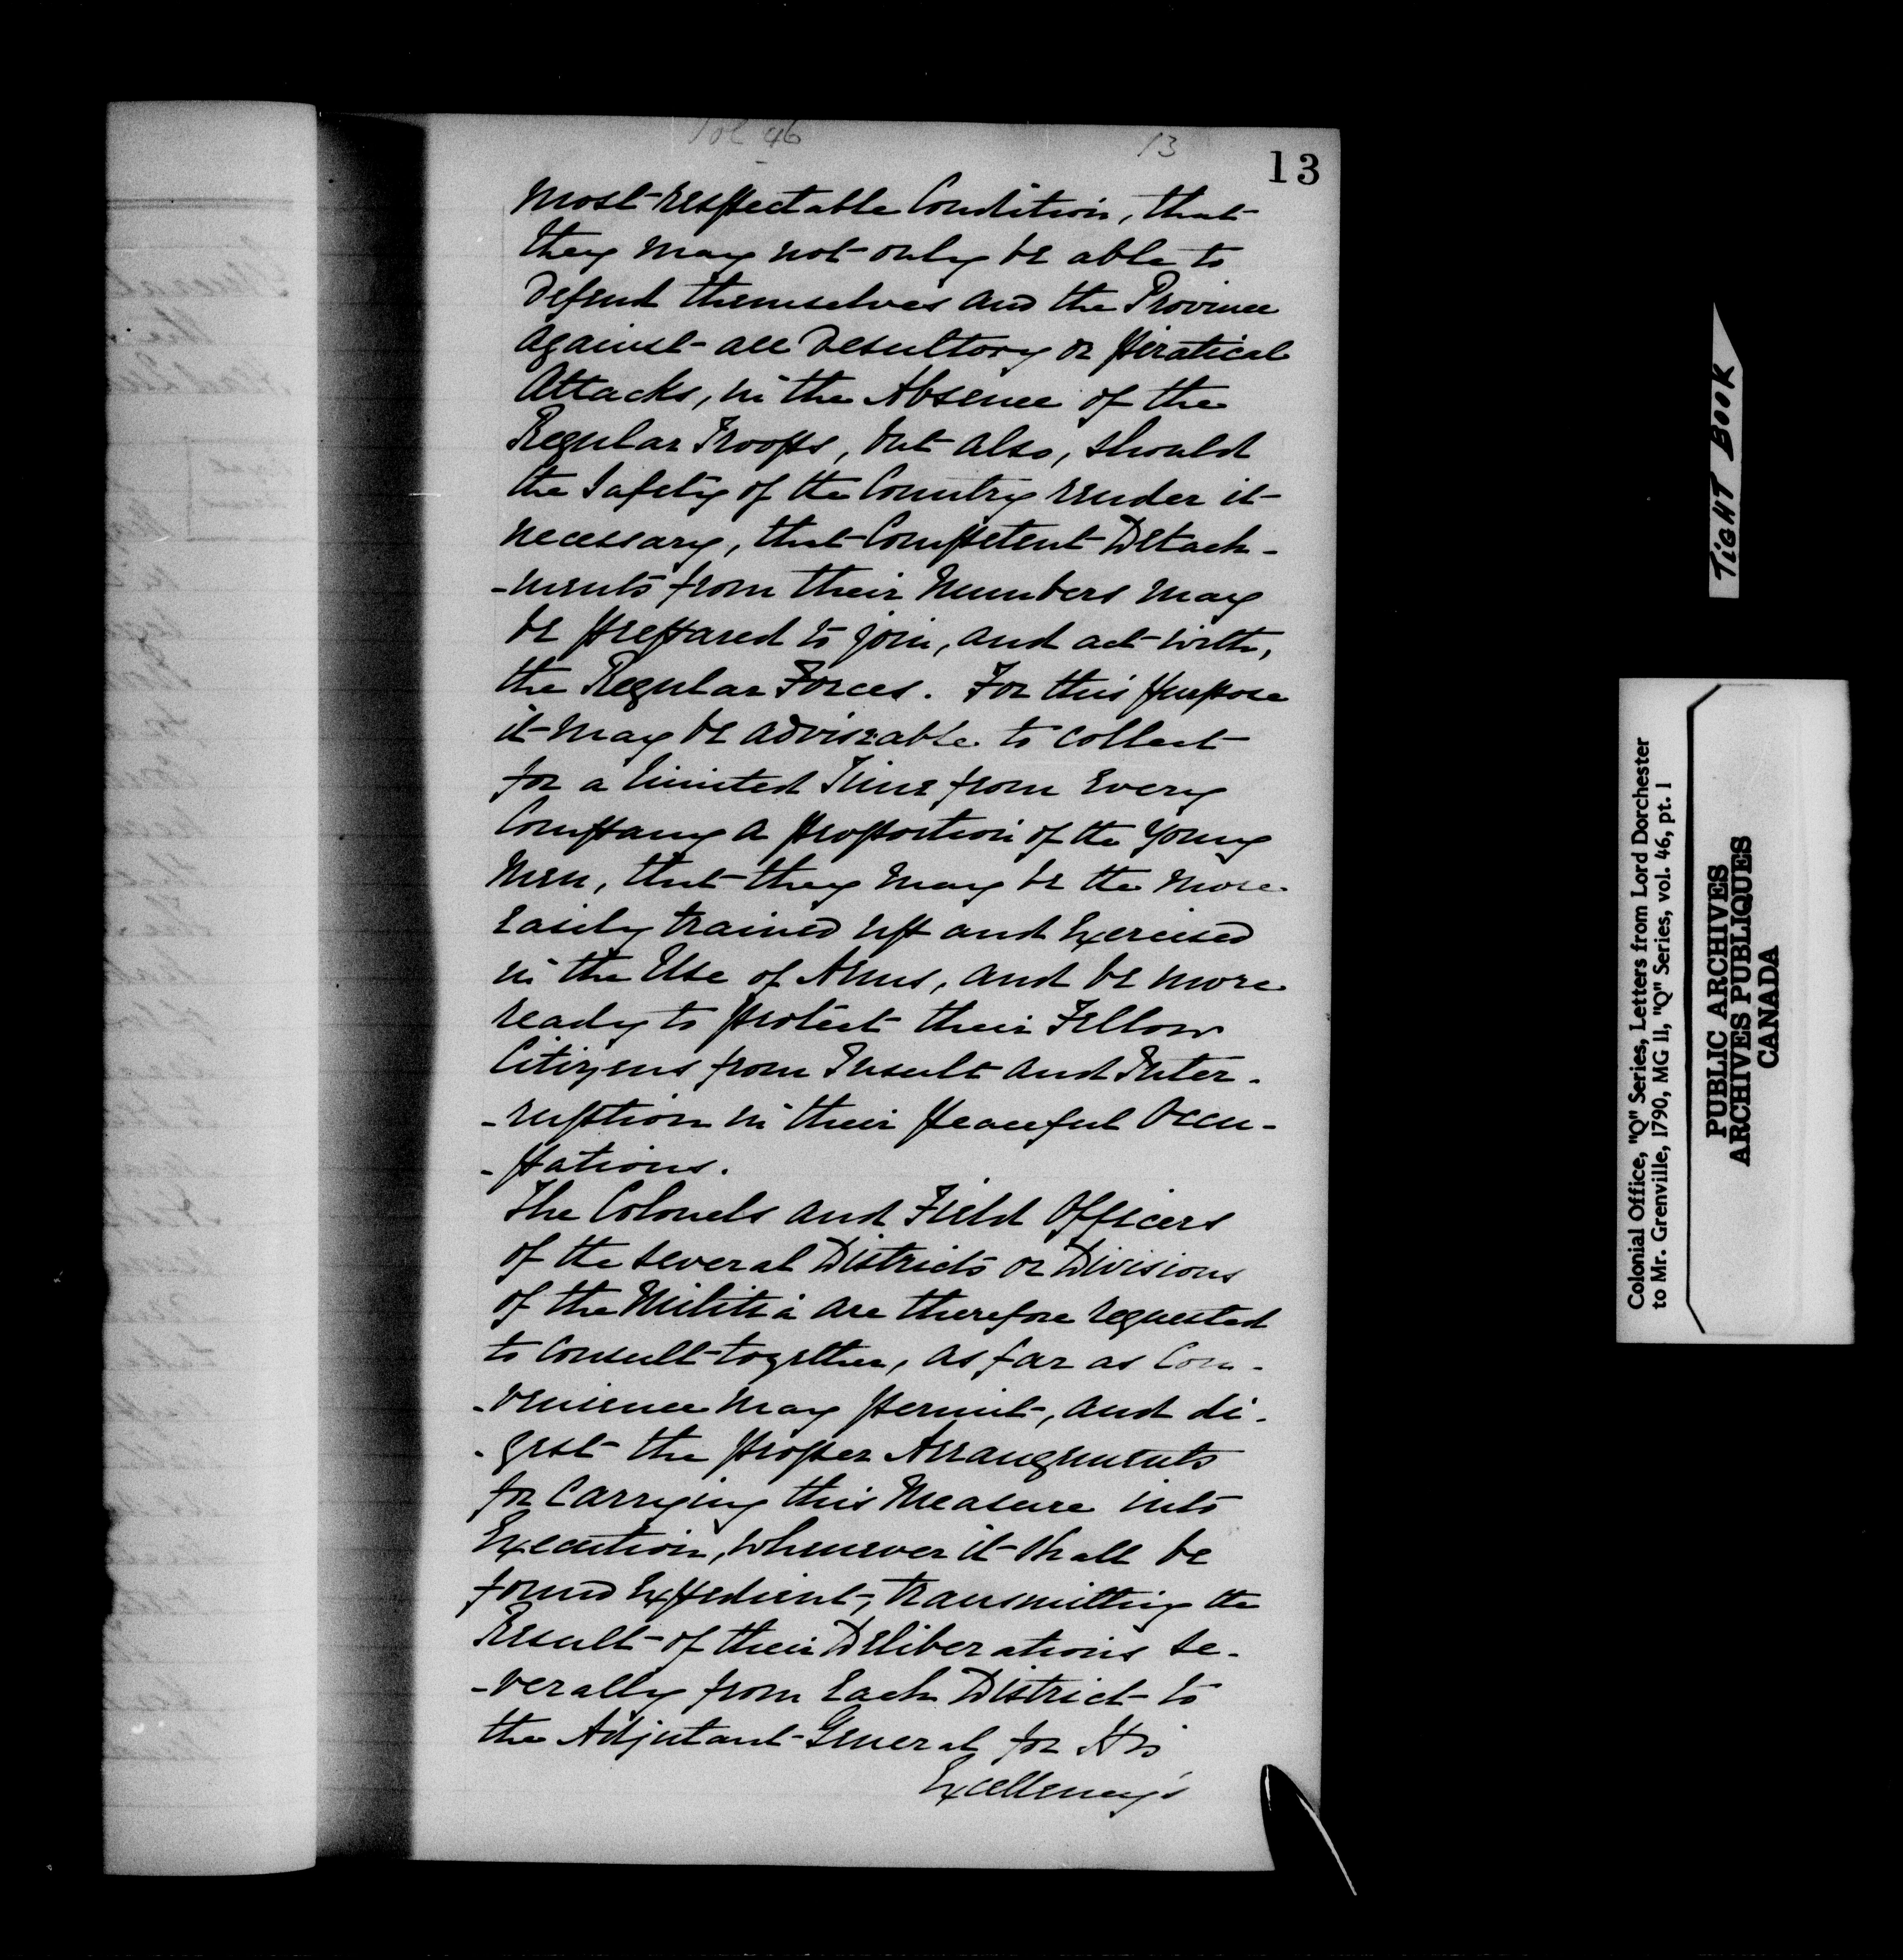 Vol 46
13
13
most respectable Condition, that
they may not only be able to
defend themselves and the Province
against all desultory or piratical
Attacks, in the Absence of the
Regular Troops, but also, should
the Safety of the Country render it
necessary, that Competent Detach-
-ments from their Numbers may
be prepared to join, and act with,
the Regular Forces. For this purpose
it may be adviseable to collect
for a limited Time from every
Company a proportion of the young
Men, that they may be the more
easily trained up and exercised
in the Use of Arms, and be more
ready to protect their Fellow
Citizens from Insult and Inter-
-ruption in their peaceful Occu-
-pations.
The Colonels and Field Officers
of the several Districts or Divisions
of the Militia are therefore requested
to consult together, as far as Con-
-venience may permit, and di-
-gest the proper Arrangements
for carrying this Measure into
Execution, whenever it shall be
found expedient, transmitting the
Result of their Deliberations se-
-verally from each District to
the Adjutant-General for His
Excellency's
TIGHT BOOK
Colonial Office, "Q" Series, Letters from Lord Dorchester
to Mr. Grenville, 1790, MG 11, "Q" Series, vol. 46, pt. 1
PUBLIC ARCHIVES
ARCHIVES PUBLIQUES
CANADA